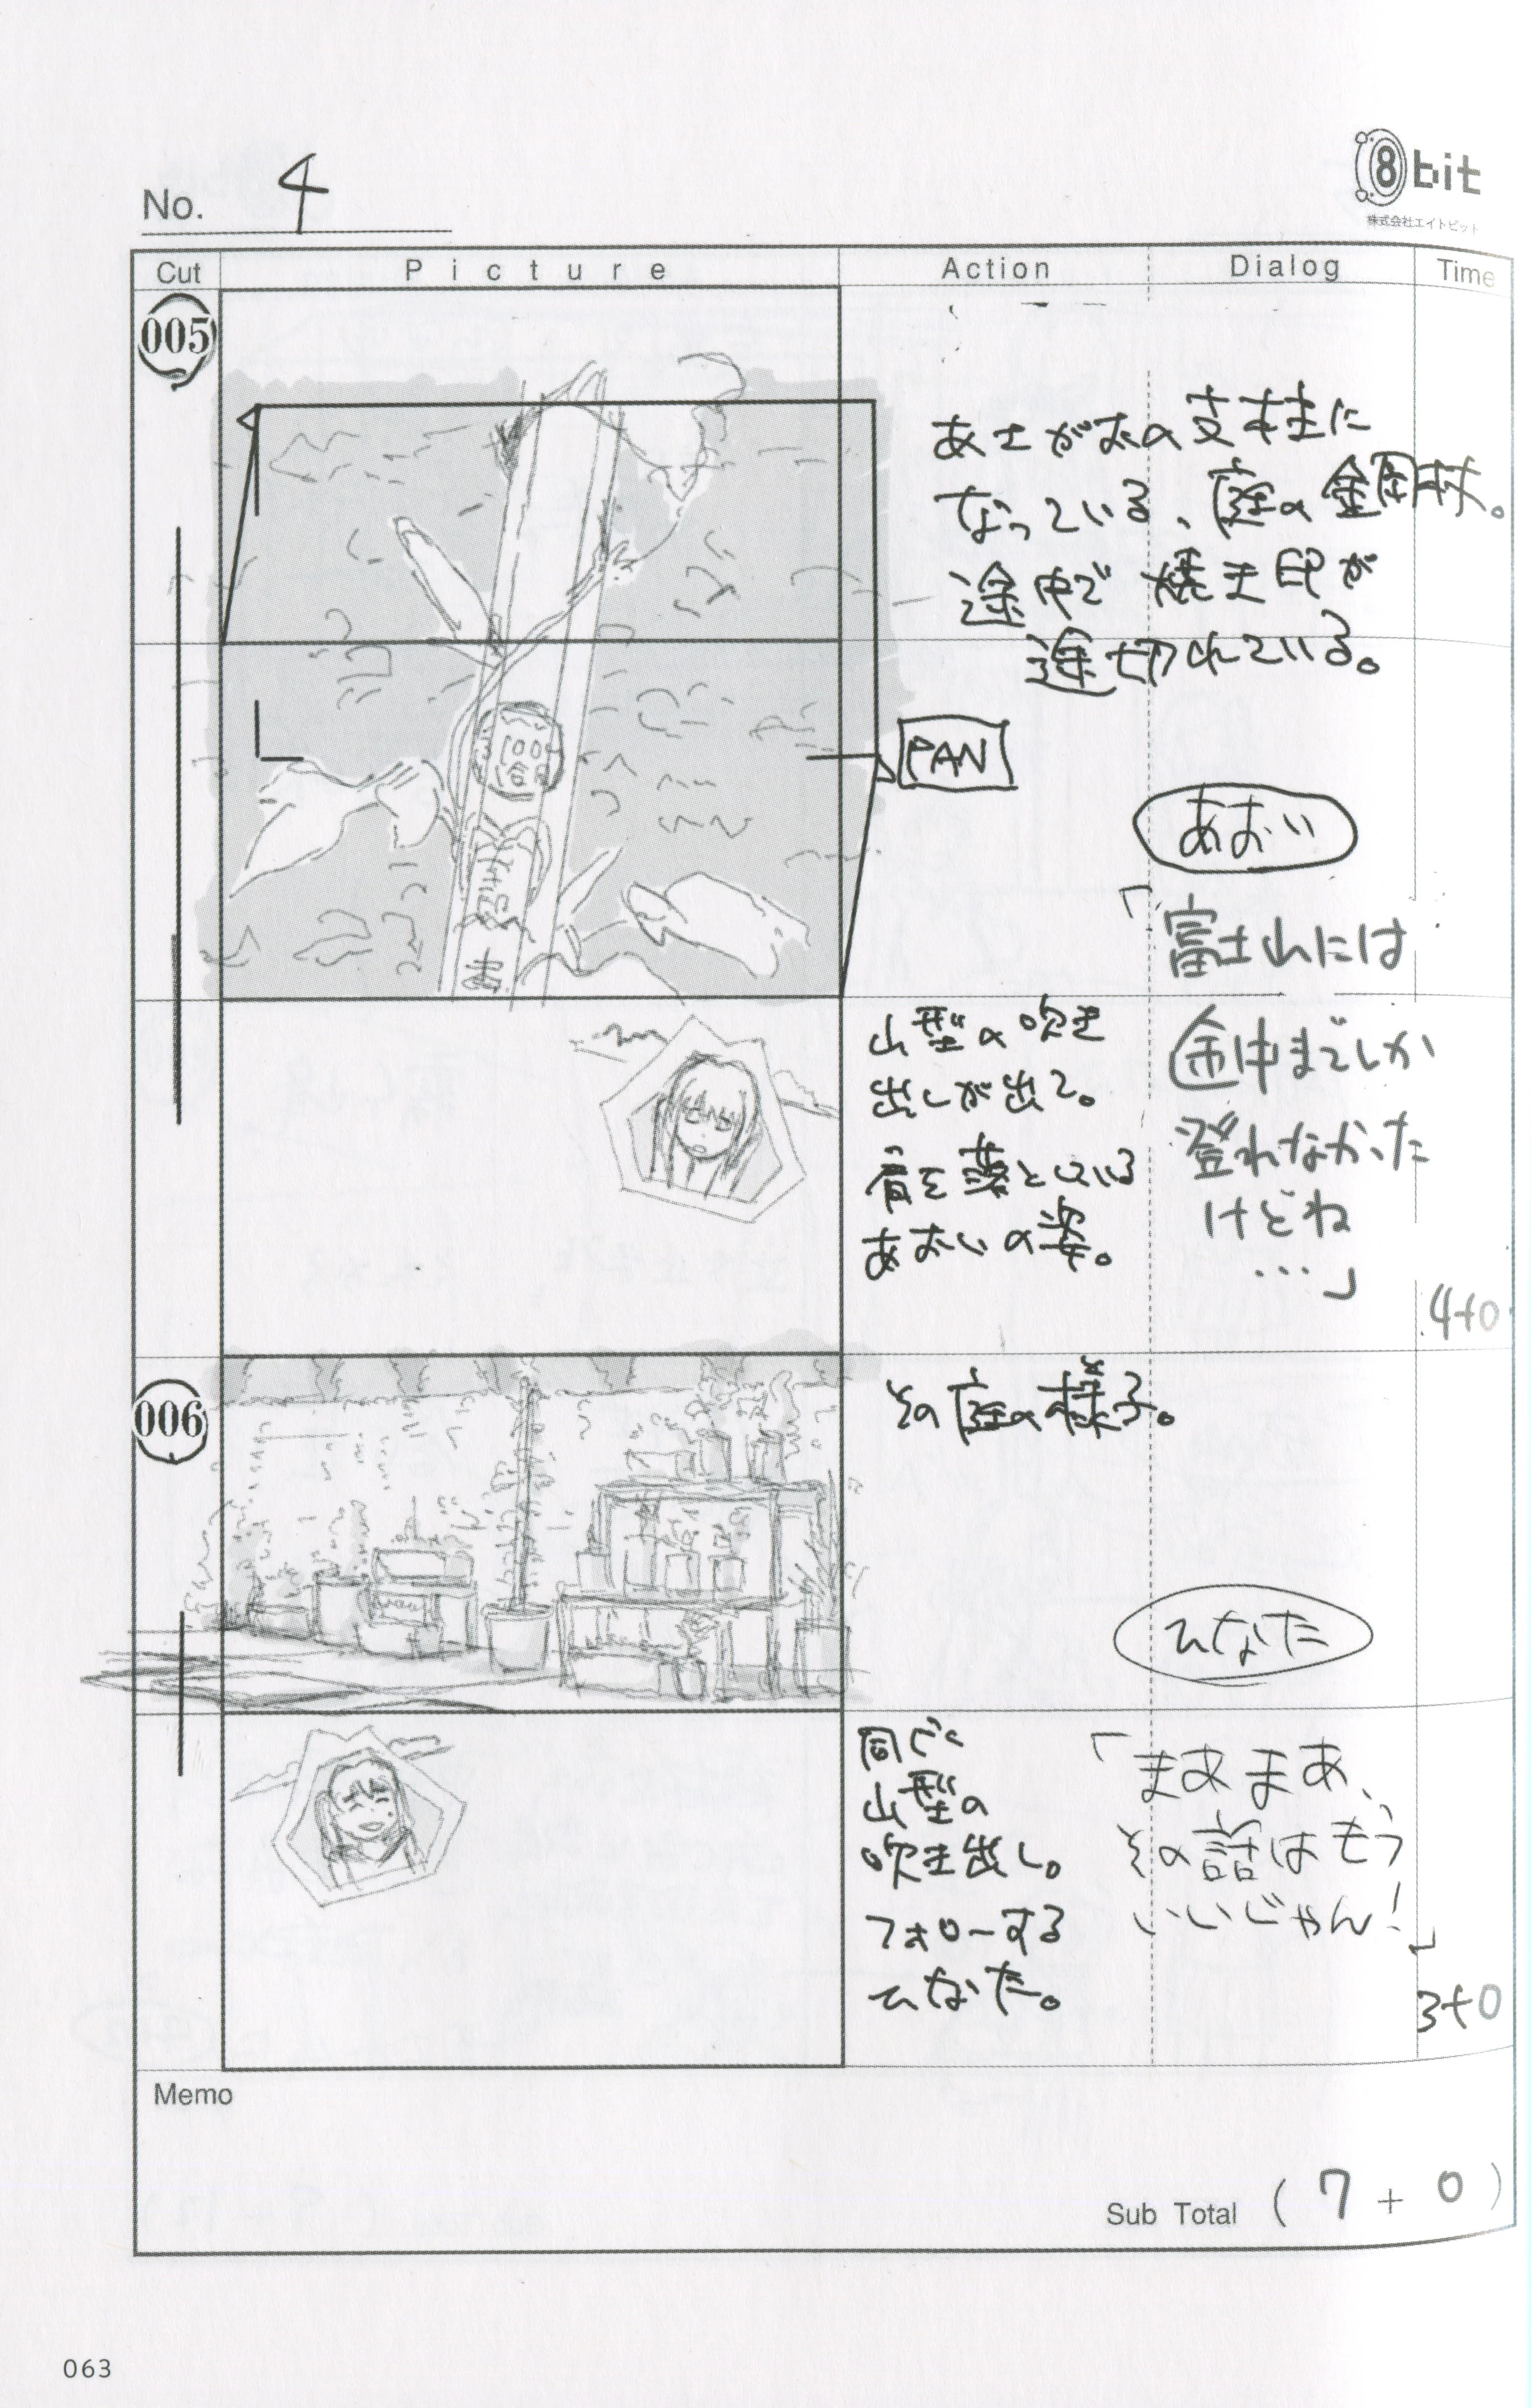 No. 4
8bit
株式会社エイトビット
Cut Picture Action Dialog Time
005
あさがおの支柱に
なっている、庭の金剛杖。
途中で焼き印が
途切れている。
PAN
あおい
「富士山には
途中までしか
登れなかった
けどね
…」
山型の吹き
出しが出て。
肩を落としている
あおいの姿。
4+0
006
その庭の様子。
ひなた
同じく
山型の
吹き出し。
フォローする
ひなた。
「まあまあ、
その話はもう
いいじゃん!」
3+0
Memo
Sub Total ( 7 + 0 )
063